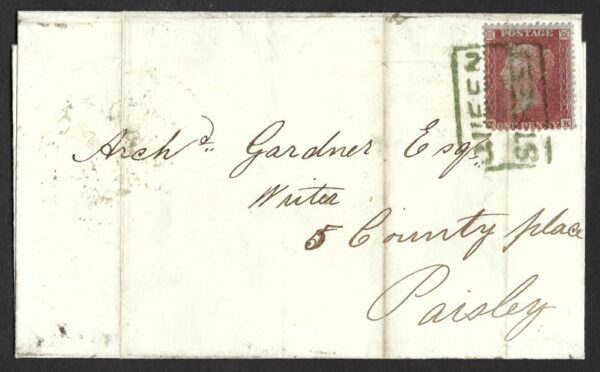 POSTAGE
ONE PENNY
K
QUEEN
Archd. Gardner Esq.
Writer
5 County place
Paisley